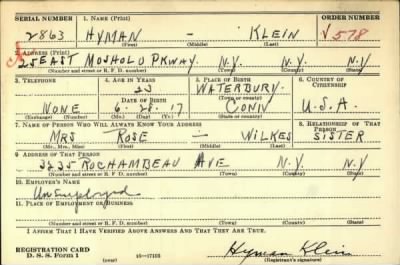 SERIAL NUMBER 1. NAME (Print) ORDER NUMBER
2863 HYMAN - KLEIN V578
(First) (Middle) (Last)
2. ADDRESS (Print)
25 EAST MOSHOLU PKWAY. N.Y. N.Y.
(Number and street or R. F. D. number) (Town) (County) (State)
3. TELEPHONE 4. AGE IN YEARS 5. PLACE OF BIRTH 6. COUNTRY OF CITIZENSHIP
23 WATERBURY
DATE OF BIRTH (Town or county)
NONE 6-28-17 CONN U.S.A.
(Exchange) (Number) (Mo.) (Day) (Yr.) (State or country)
7. NAME OF PERSON WHO WILL ALWAYS KNOW YOUR ADDRESS 8. RELATIONSHIP OF THAT PERSON
MRS ROSE - WILKES SISTER
(Mr., Mrs., Miss) (First) (Middle) (Last)
9. ADDRESS OF THAT PERSON
3235 ROCHAMBEAU AVE N.Y. N.Y.
(Number and street or R. F. D. number) (Town) (County) (State)
10. EMPLOYER'S NAME
Unemployed
11. PLACE OF EMPLOYMENT OR BUSINESS
(Number and street or R. F. D. number) (Town) (County) (State)
I AFFIRM THAT I HAVE VERIFIED ABOVE ANSWERS AND THAT THEY ARE TRUE.
REGISTRATION CARD
D. S. S. Form 1 (over) 16-17105 Hyman Klein
(Registrant's signature)